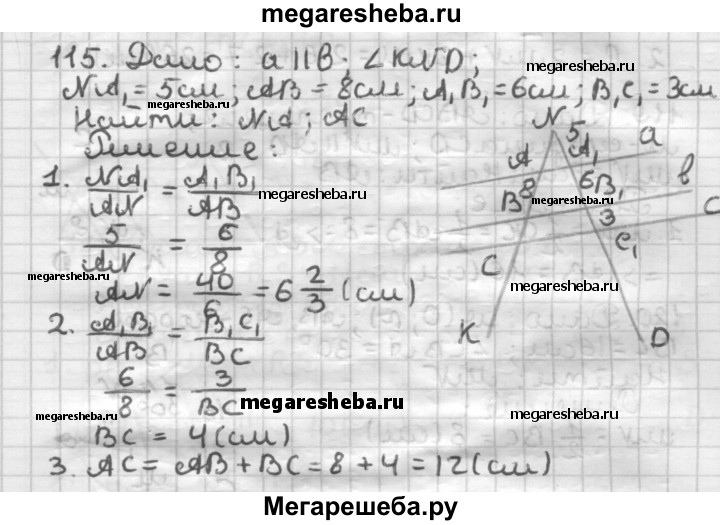 megaresheba.ru
115. Дано: a || b; ∠KND;
NA₁ = 5см; AB = 8см; A₁B₁ = 6см; B₁C₁ = 3см
Найти: NA; AC
Решение:
1. NA₁/AN = A₁B₁/AB
5/AN = 6/8
AN = 40/6 = 6 2/3 (см)
2. A₁B₁/AB = B₁C₁/BC
6/8 = 3/BC
BC = 4 (см)
3. AC = AB + BC = 8 + 4 = 12 (см)
N 5 a
A A₁
8 6 B₁ b
B C
3
C C₁
K D
megaresheba.ru
megaresheba.ru
megaresheba.ru
megaresheba.ru
megaresheba.ru
megaresheba.ru
megaresheba.ru
megaresheba.ru
megaresheba.ru
Мегарешеба.ру